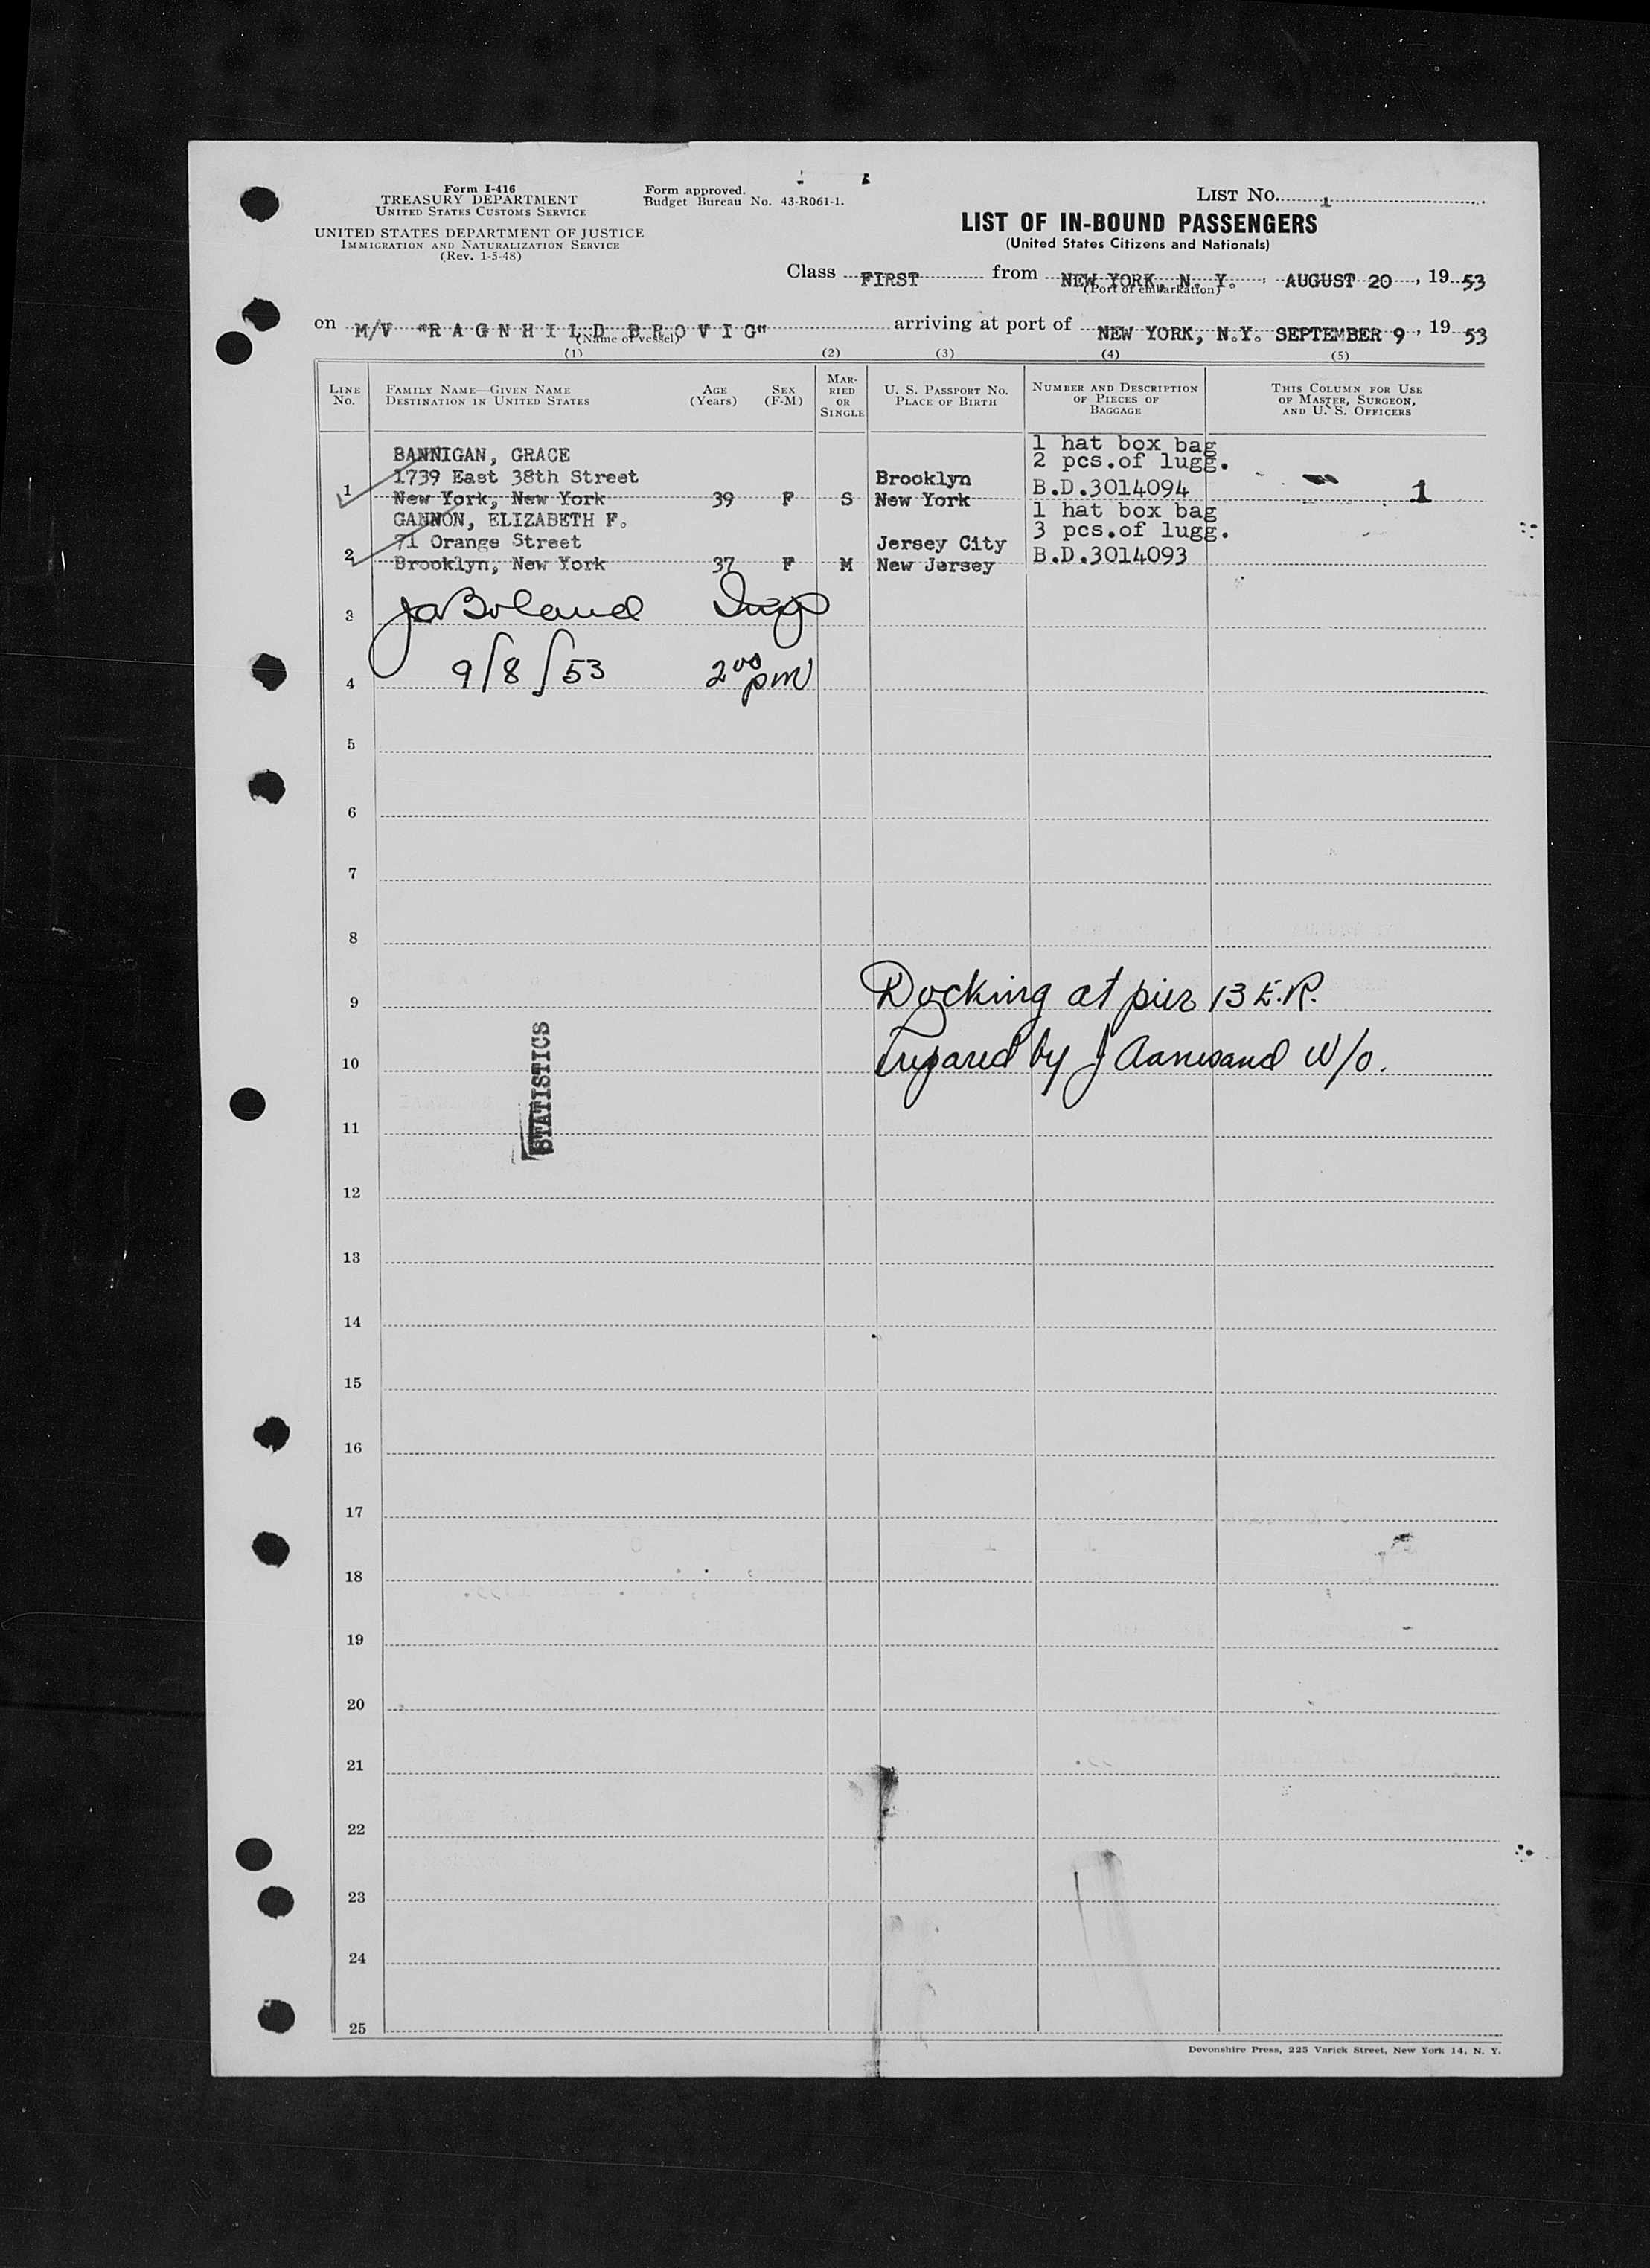 Form I-416
TREASURY DEPARTMENT
UNITED STATES CUSTOMS SERVICE
UNITED STATES DEPARTMENT OF JUSTICE
IMMIGRATION AND NATURALIZATION SERVICE
(Rev. 1-5-48)
Form approved.
Budget Bureau No. 43-R061-1.
LIST No. 1
LIST OF IN-BOUND PASSENGERS
(United States Citizens and Nationals)
Class FIRST from NEW YORK, N. Y. AUGUST 20, 1953
(Port of embarkation)
on M/V "RAGNHILD BROVIG" arriving at port of NEW YORK, N.Y. SEPTEMBER 9, 1953
(Name of vessel)
(1) (2) (3) (4) (5)
LINE No.
FAMILY NAME—GIVEN NAME
DESTINATION IN UNITED STATES
AGE (Years)
SEX (F-M)
MARRIED OR SINGLE
U. S. PASSPORT No.
PLACE OF BIRTH
NUMBER AND DESCRIPTION OF PIECES OF BAGGAGE
THIS COLUMN FOR USE OF MASTER, SURGEON, AND U. S. OFFICERS
BANNIGAN, GRACE 1 hat box bag
1739 East 38th Street Brooklyn 2 pcs.of lugg.
1 New York, New York 39 F S New York B.D.3014094 1
GANNON, ELIZABETH F. 1 hat box bag
71 Orange Street Jersey City 3 pcs.of lugg.
2 Brooklyn, New York 37 F M New Jersey B.D.3014093
3 Boland
4 9/8/53 2 00 pm
5
6
7
8
9 Docking at pier 13 E.R.
10 Prepared by J Aanesand W/o.
STATISTICS
11
12
13
14
15
16
17
18
19
20
21
22
23
24
25
Devonshire Press, 225 Varick Street, New York 14, N. Y.